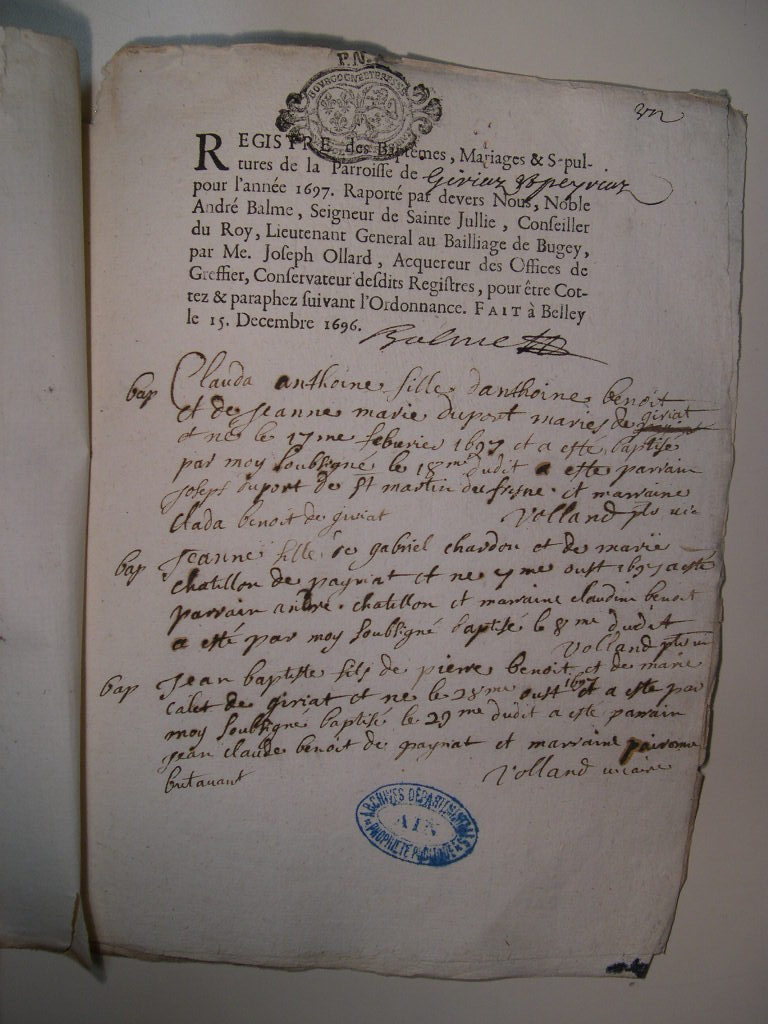 P.N.
BOURGOGNE ET BRESSE
REGISTRE des Baptêmes, Mariages & Sepul-
tures de la Paroisse de Giriaz & peyriaz
pour l'année 1697. Raporté par devers Nous, Noble
André Balme, Seigneur de Sainte Jullie, Conseiller
du Roy, Lieutenant General au Bailliage de Bugey,
par Me. Joseph Ollard, Acquereur des Offices de
Greffier, Conservateur desdits Registres, pour être Cot-
tez & paraphez suivant l'Ordonnance. FAIT à Belley
le 15. Decembre 1696.
Balme
bap Clauda anthoine fille danthoine benoit
et de Jeanne marie duport mariés de giriat
et nee le 17me febvrier 1697 et a esté baptisé
par moy soubsigné le 18me dudit a este parrain
Joseph duport de St martin du fresne et marraine
Clada benoit de giriat Volland ptre vic
bap Jeanne fille de gabriel chardon et de marie
chatillon de payriat et ne 7me oust 1697 a este
parrain andre chatillon et marraine claudine benoit
a esté par moy soubsigné baptisé le 8me dudit
Volland ptre vic
bap Jean baptiste fils de pierre benoit et de marie
calet de giriat et ne le 28me oust 1697 et a este par
moy soubsigné baptisé le 29me dudit a este parrain
Jean claude benoit de payriat et marraine pairone
brutavant Volland vicaire
ARCHIVES DÉPARTEMENTALES
AIN
PROPRIÉTÉ PUBLIQUE